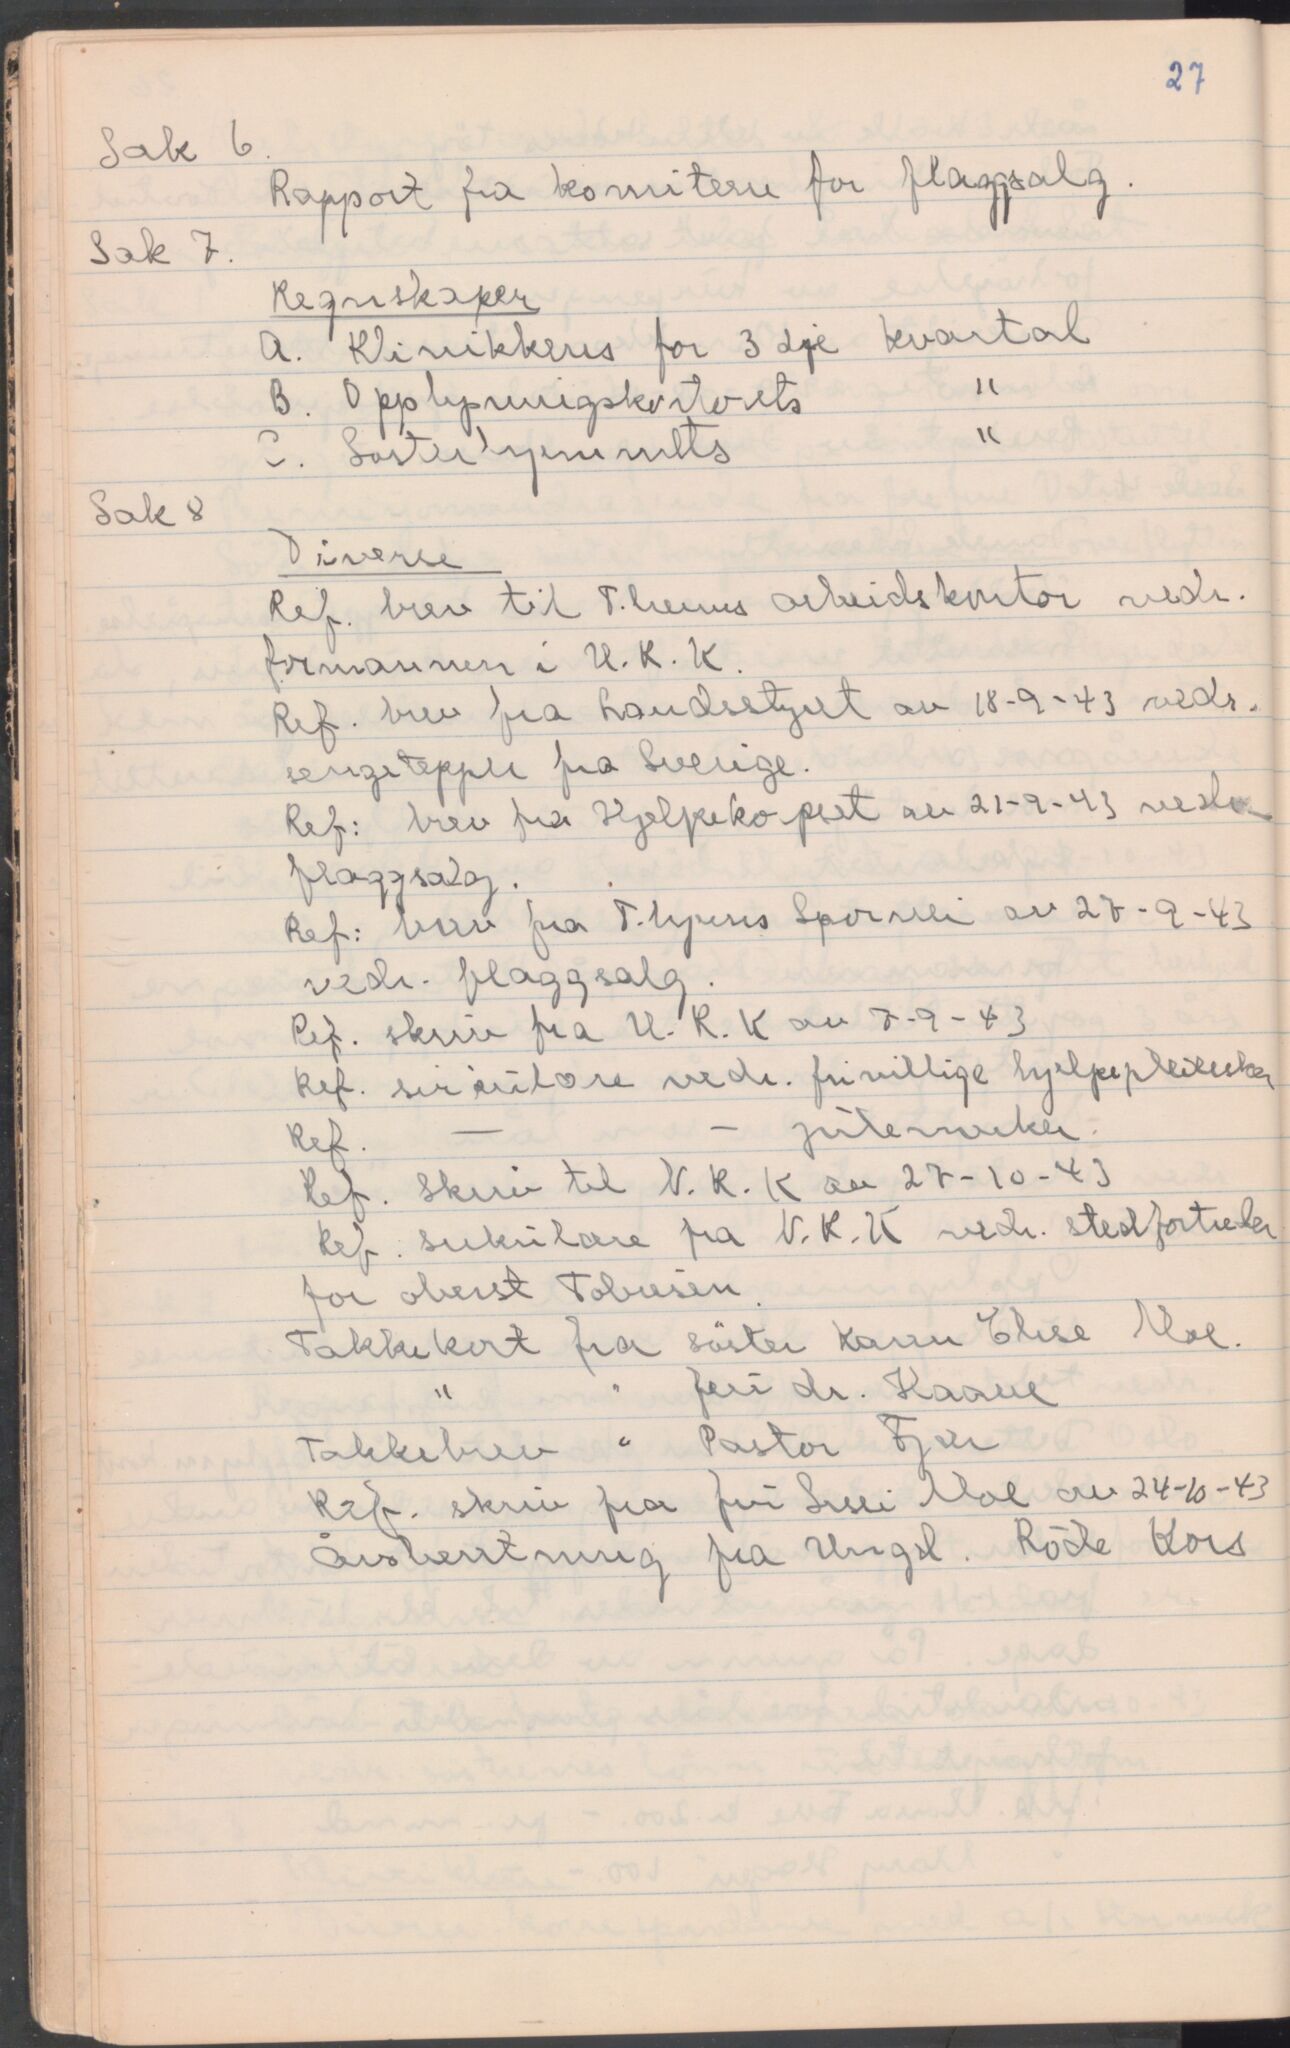 27
Sak 6.
Rapport fra komiteen for flaggsalg.
Sak 7.
Regnskaper
A. Klinikkens for 3 dje kvartal
B. Opplysningskontorets "
C. Søsterhjemmets "
Sak 8
Diverse
Ref. brev til T.heims arbeidskontor vedr.
formannen i U.K.K.
Ref. brev fra Landsstyret av 18-9-43 vedr.
sengetepper fra Sverige.
Ref: brev fra Hjelpekorpset av 21-9-43 vedr.
flaggsalg.
Ref: brev fra T.hjems Sporvei av 27-9-43
vedr. flaggsalg.
Ref. skriv fra U.R.K av 7-9-43
Ref. sirkulære vedr. frivillige hjelpepleiersker
Ref. — — julemerker.
Ref. Skriv til N.R.K av 27-10-43
Ref. sirkulære fra N.R.K vedr. stedfortreder
for oberst Tobiesen.
Takkekort fra söster Karen Elise Moe.
" " frü dr. Kaarre
Takkebrev " Pastor Fjær
Ref. skriv fra frü Sissi Moe av 24-10-43
Årsberetning fra Ungd. Röde Kors